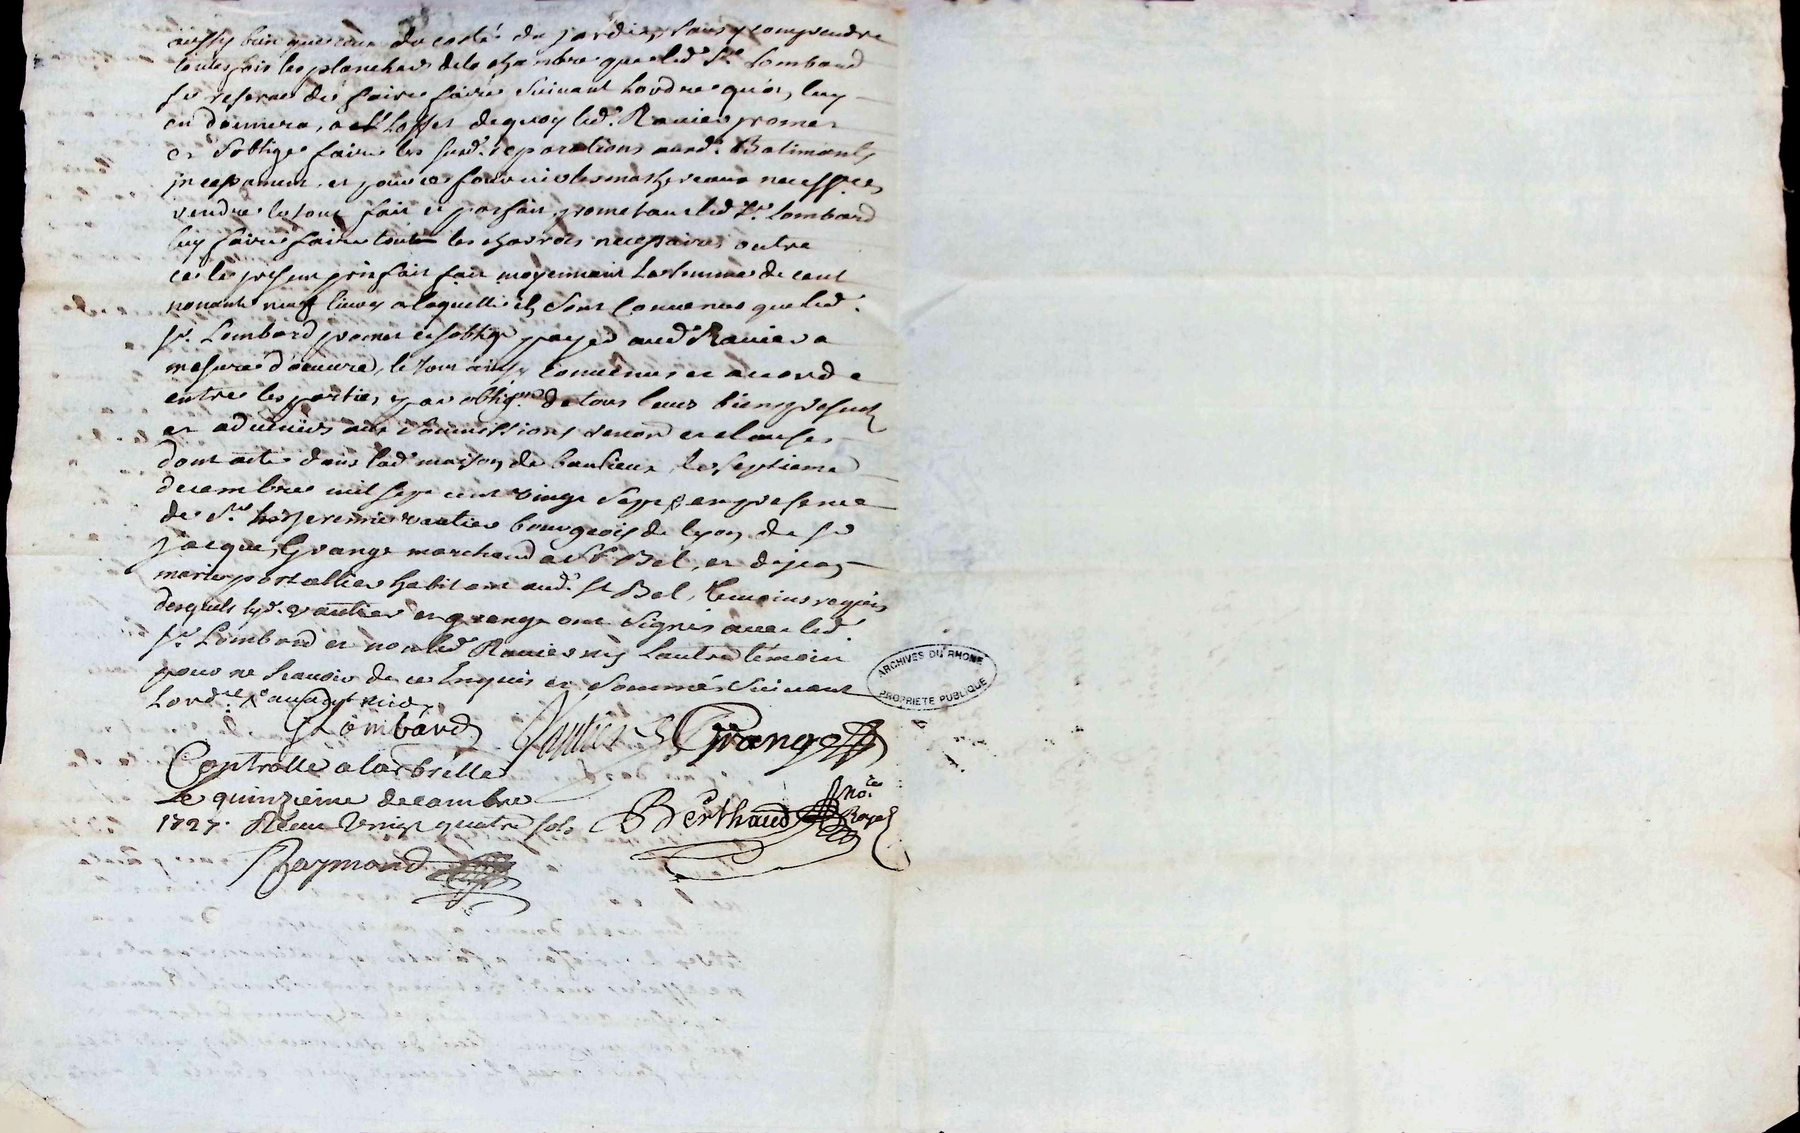 aussy bien que ceux du costé du jardin, sans y comprendre
toutesfois les planchers de la chambre que led. Sr. Lombard
se reserve de faire faire suivant l'ordre qu'on luy
en donnera, a l'effet de quoy led. Ravier promet
et s'oblige faire les susd. reparations ausd. Batimants
incessament, et pour ce fournir les matereaux necessres,
rendre le tout fait et parfait, prometant led. Sr. Lombard
luy faire faire toutes les charrois necessaires outre
ce le present prixfait fait moyennant la somme de cent
nonante neuf livres a laquelle ils sont convenus que led.
Sr. Lombard promet et s'oblige payer aud. Ravier a
mesure d'oeuvre, le tout ainsy convenus et accordé
entre les parties, par obligon. de tous leurs biens presents
et advenirs aux soumissions renon. et clauses
dont acte dans lad. maison de le septieme
decembre mil sept cent vingt sept, en presence
de Sr. vautier bourgeois de lyon, de Sr.
jacques Grange marchand a St. Bel, et de jean
habitant aud. St Bel, temoins requis
desquels lesd. vautier et grange ont signés avec led.
Sr. Lombard et non led. Ravier ny l'autre témoin
pour ne sçavoir de ce Enquis et sommés suivant
Lordce.
Lombard Vautier Grange
Controllé a larbrelle
Le quinzieme decembre
1727. Receu Vingt quatre sols
Berthaud Nore. Royal
Raymond
ARCHIVES DU RHONE
PROPRIETE PUBLIQUE